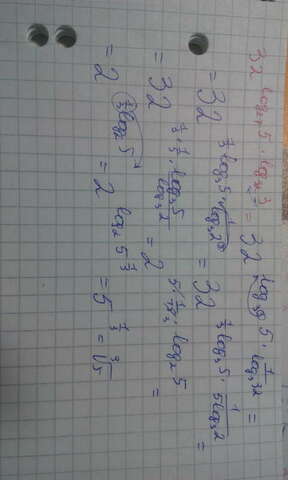 32^{log₂₇ 5 · log₃₂ 3} = 32^{log_{3³} 5 · 1/log₃ 32} =
= 32^{1/3 log₃ 5 · 1/log₃ 2⁵} = 32^{1/3 log₃ 5 · 1/5log₃ 2} =
= 32^{1/3 · 1/5 · log₃ 5/log₃ 2} = 2^{5 · 1/15 · log₂ 5} =
= 2^{1/3 log₂ 5} = 2^{log₂ 5^{1/3}} = 5^{1/3} = ∛5